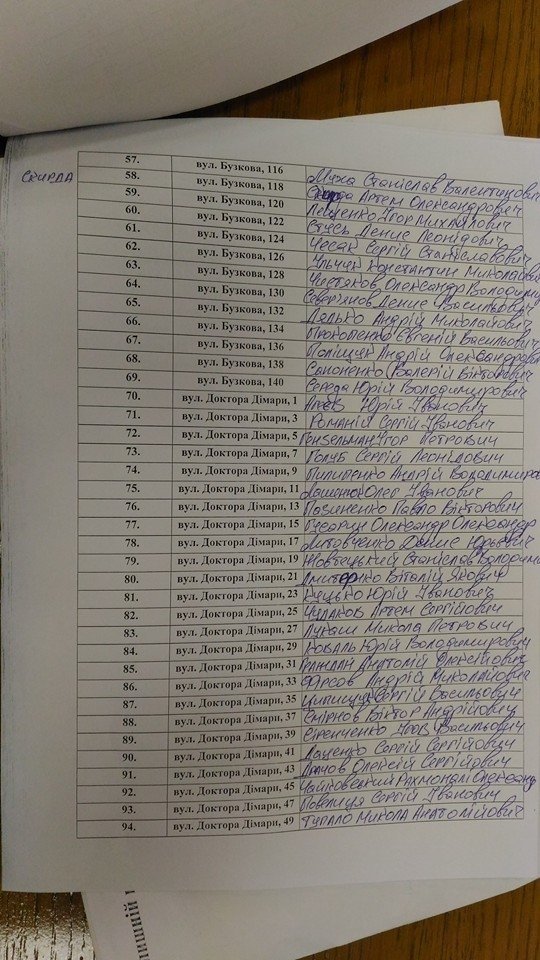 СКИРДА
57. вул. Бузкова, 116 Муха Станіслав Валентинович
58. вул. Бузкова, 118 Скирда Артем Олександрович
59. вул. Бузкова, 120 Лещенко Ігор Михайлович
60. вул. Бузкова, 122 Стусь Денис Леонідович
61. вул. Бузкова, 124 Чесак Сергій Станіславович
62. вул. Бузкова, 126 Ульчук Константин Миколайович
63. вул. Бузкова, 128 Чистяков Олександр Володими
64. вул. Бузкова, 130 Север'янов Денис Васильович
65. вул. Бузкова, 132 Дядько Андрій Миколайович
66. вул. Бузкова, 134 Прокопенко Євгеній Васильов
67. вул. Бузкова, 136 Поліщук Андрій Олександрови
68. вул. Бузкова, 138 Сапоненко Валерій Вікторович
69. вул. Бузкова, 140 Середа Юрій Володимирович
70. вул. Доктора Дімари, 1 Юрій Іванович
71. вул. Доктора Дімари, 3 Романій Сергій Іванович
72. вул. Доктора Дімари, 5 Гонзельман Ігор Петрович
73. вул. Доктора Дімари, 7 Голуб Сергій Леонідович
74. вул. Доктора Дімари, 9 Пилипенко Андрій Володимиров
75. вул. Доктора Дімари, 11 Олег Іванович
76. вул. Доктора Дімари, 13 Пазиненко Павло Вікторович
77. вул. Доктора Дімари, 15 Олександр Олександр
78. вул. Доктора Дімари, 17 Литовченко Денис Юрьевич
79. вул. Доктора Дімари, 19 Жовтецький Станіслав Володими
80. вул. Доктора Дімари, 21 Дмитренко Віталій Якович
81. вул. Доктора Дімари, 23 Куцько Юрій Іванович
82. вул. Доктора Дімари, 25 Чудаков Артем Сергійович
83. вул. Доктора Дімари, 27 Лукаш Микола Петрович
84. вул. Доктора Дімари, 29 Коваль Юрій Володимирович
85. вул. Доктора Дімари, 31 Анатолій Олексійович
86. вул. Доктора Дімари, 33 Фірсов Андрій Миколайович
87. вул. Доктора Дімари, 35 Сергій Васильович
88. вул. Доктора Дімари, 37 Смірнов Віктор Андрійович
89. вул. Доктора Дімари, 39 Сіренченко Васильович
90. вул. Доктора Дімари, 41 Даценко Сергій Сергійович
91. вул. Доктора Дімари, 43 Олексій Сергійович
92. вул. Доктора Дімари, 45 Чайковський Рахмоналі Олександ
93. вул. Доктора Дімари, 47 Повелиця Сергій Іванович
94. вул. Доктора Дімари, 49 Тупало Микола Анатолійович